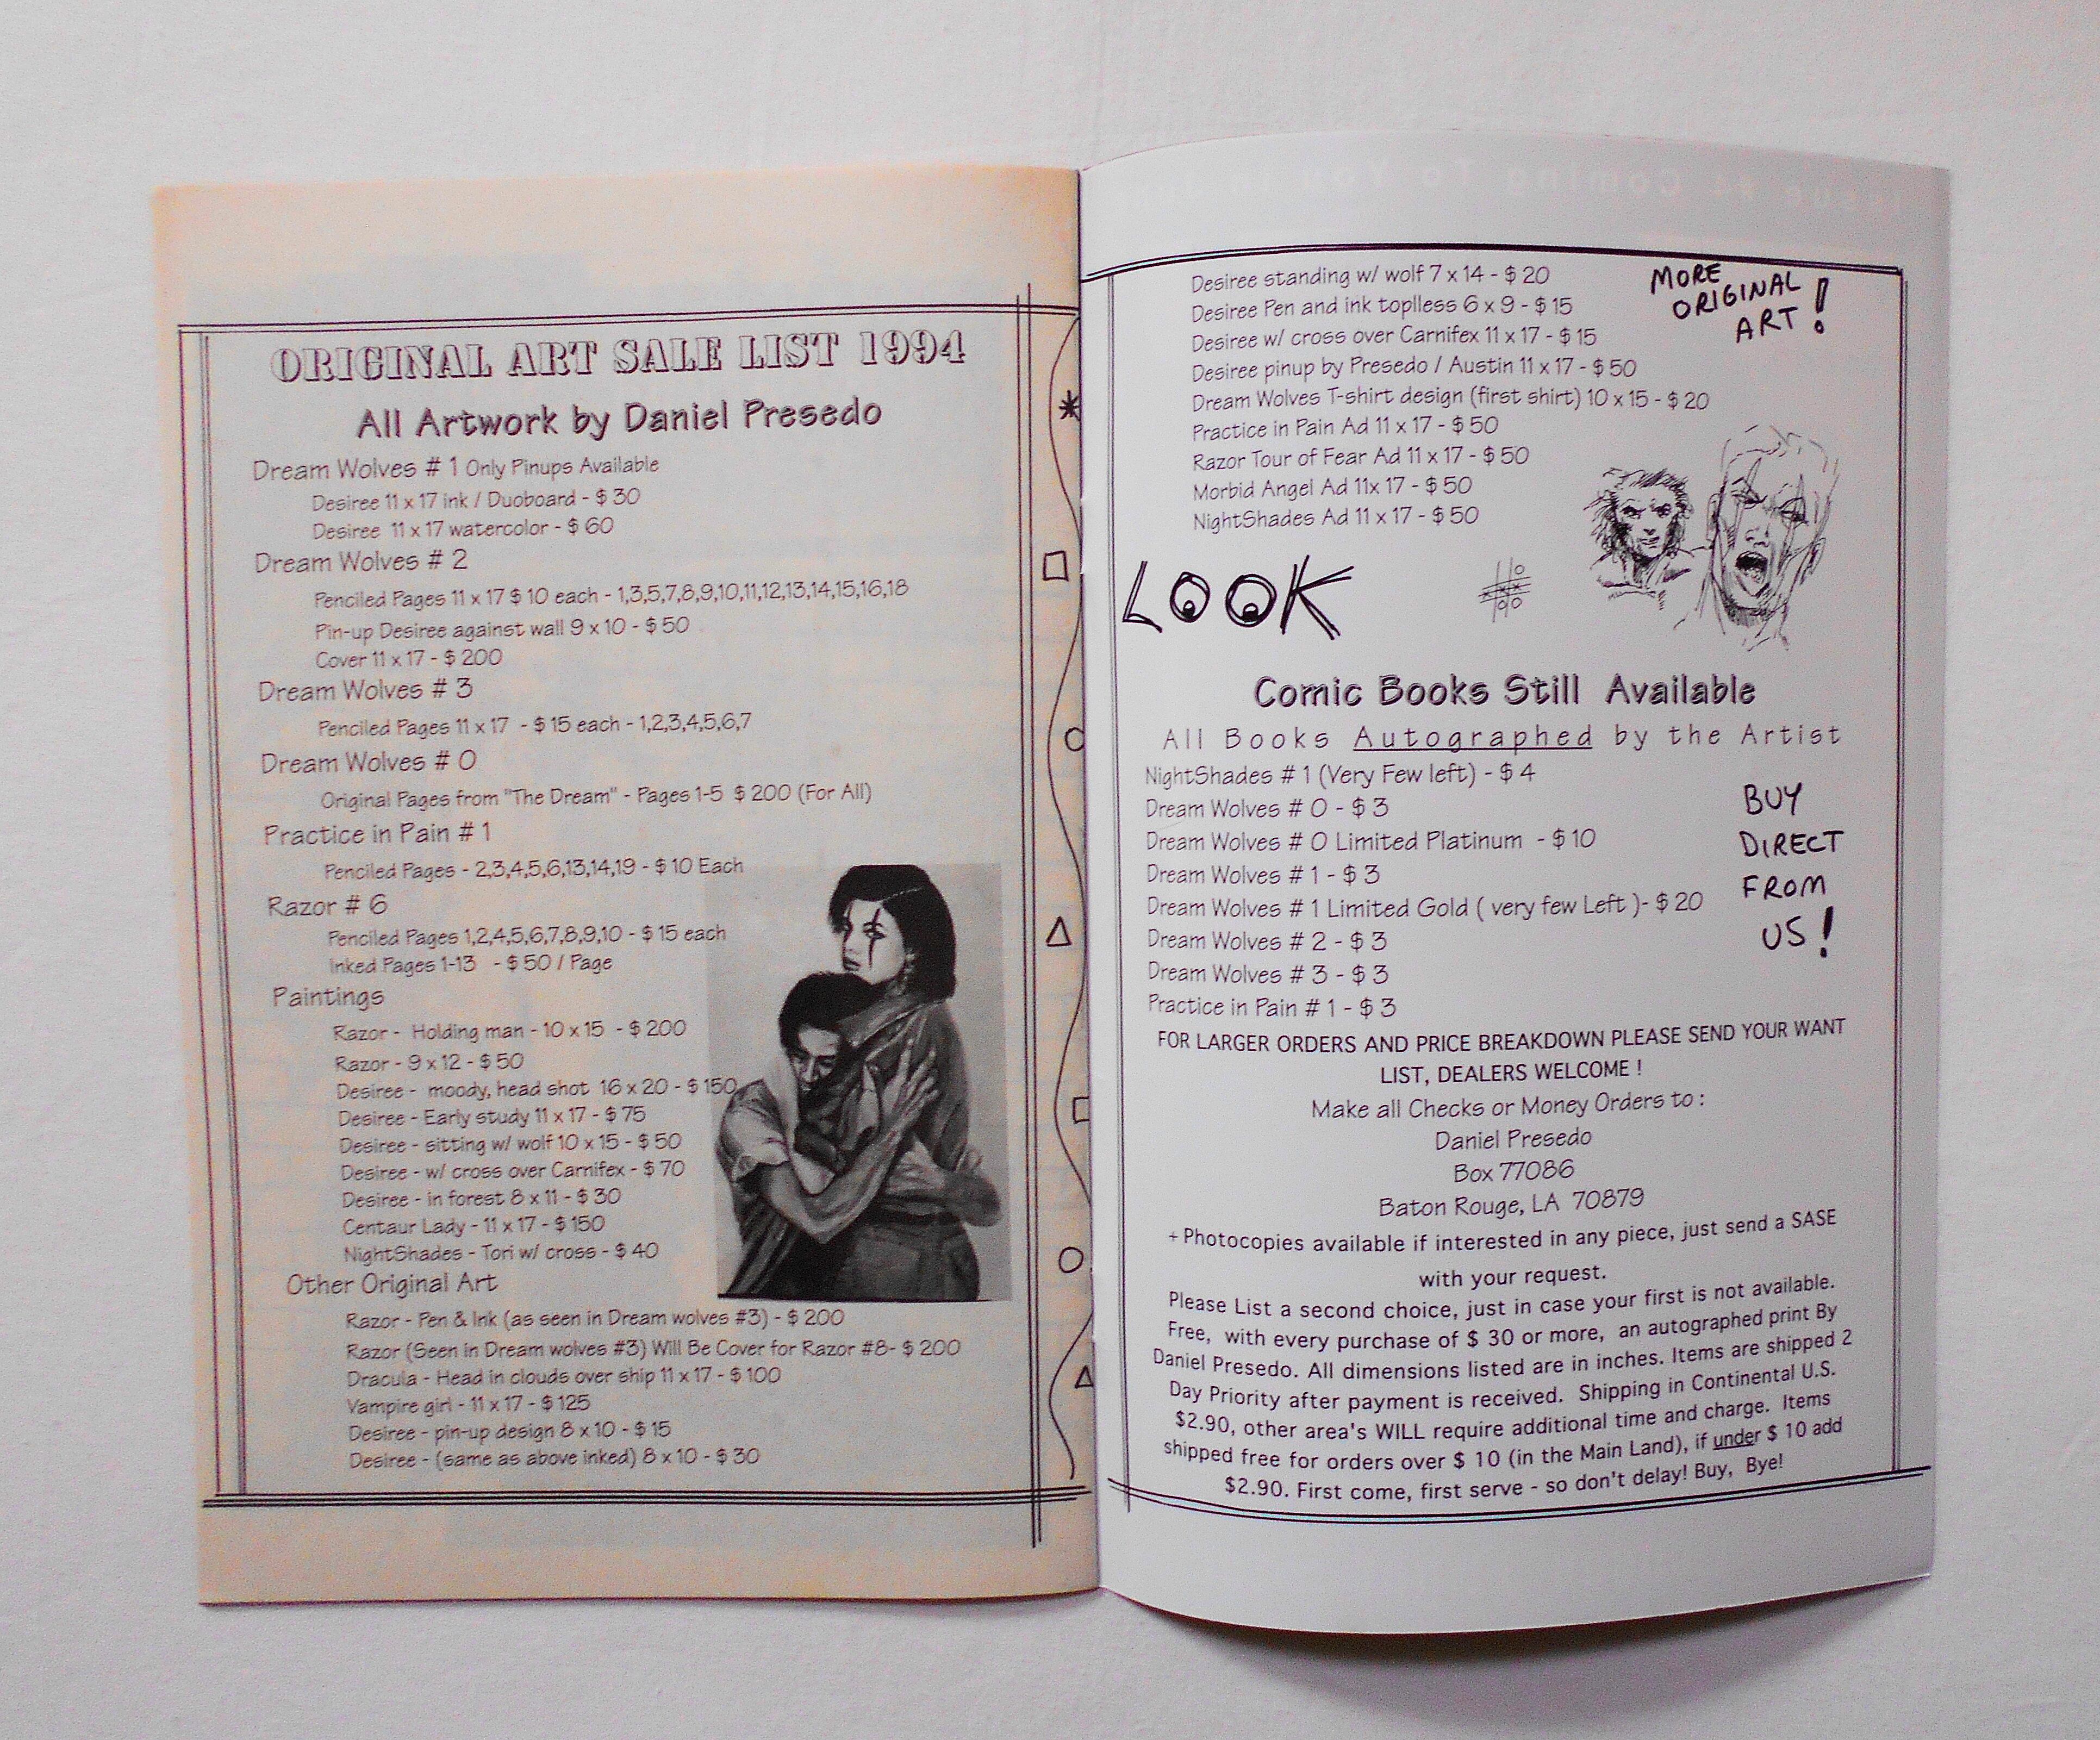 ORIGINAL ART SALE LIST 1994
All Artwork by Daniel Presedo
Dream Wolves # 1 Only Pinups Available
Desiree 11 x 17 ink / Duoboard - $ 30
Desiree 11 x 17 watercolor - $ 60
Dream Wolves # 2
Penciled Pages 11 x 17 $ 10 each - 1,3,5,7,8,9,10,11,12,13,14,15,16,18
Pin-up Desiree against wall 9 x 10 - $ 50
Cover 11 x 17 - $ 200
Dream Wolves # 3
Penciled Pages 11 x 17 - $ 15 each - 1,2,3,4,5,6,7
Dream Wolves # 0
Original Pages from "The Dream" - Pages 1-5 $ 200 (For All)
Practice in Pain # 1
Penciled Pages - 2,3,4,5,6,13,14,19 - $ 10 Each
Razor # 6
Penciled Pages 1,2,4,5,6,7,8,9,10 - $ 15 each
Inked Pages 1-13 - $ 50 / Page
Paintings
Razor - Holding man - 10 x 15 - $ 200
Razor - 9 x 12 - $ 50
Desiree - moody, head shot 16 x 20 - $ 150
Desiree - Early study 11 x 17 - $ 75
Desiree - sitting w/ wolf 10 x 15 - $ 50
Desiree - w/ cross over Carnifex - $ 70
Desiree - in forest 8 x 11 - $ 30
Centaur Lady - 11 x 17 - $ 150
NightShades - Tori w/ cross - $ 40
Other Original Art
Razor - Pen & Ink (as seen in Dream wolves #3) - $ 200
Razor (Seen in Dream wolves #3) Will Be Cover for Razor #8- $ 200
Dracula - Head in clouds over ship 11 x 17 - $ 100
Vampire girl - 11 x 17 - $ 125
Desiree - pin-up design 8 x 10 - $ 15
Desiree - (same as above inked) 8 x 10 - $ 30
Desiree standing w/ wolf 7 x 14 - $ 20
Desiree Pen and ink toplless 6 x 9 - $ 15
Desiree w/ cross over Carnifex 11 x 17 - $ 15
Desiree pinup by Presedo / Austin 11 x 17 - $ 50
Dream Wolves T-shirt design (first shirt) 10 x 15 - $ 20
Practice in Pain Ad 11 x 17 - $ 50
Razor Tour of Fear Ad 11 x 17 - $ 50
Morbid Angel Ad 11x 17 - $ 50
NightShades Ad 11 x 17 - $ 50
MORE
ORIGINAL
ART !
LOOK
Comic Books Still Available
All Books Autographed by the Artist
NightShades # 1 (Very Few left) - $ 4
Dream Wolves # 0 - $ 3
Dream Wolves # 0 Limited Platinum - $ 10
Dream Wolves # 1 - $ 3
Dream Wolves # 1 Limited Gold ( very few Left )- $ 20
Dream Wolves # 2 - $ 3
Dream Wolves # 3 - $ 3
Practice in Pain # 1 - $ 3
BUY
DIRECT
FROM
US !
FOR LARGER ORDERS AND PRICE BREAKDOWN PLEASE SEND YOUR WANT
LIST, DEALERS WELCOME !
Make all Checks or Money Orders to :
Daniel Presedo
Box 77086
Baton Rouge, LA 70879
+ Photocopies available if interested in any piece, just send a SASE
with your request.
Please List a second choice, just in case your first is not available.
Free, with every purchase of $ 30 or more, an autographed print By
Daniel Presedo. All dimensions listed are in inches. Items are shipped 2
Day Priority after payment is received. Shipping in Continental U.S.
$2.90, other area's WILL require additional time and charge. Items
shipped free for orders over $ 10 (in the Main Land), if under $ 10 add
$2.90. First come, first serve - so don't delay! Buy, Bye!